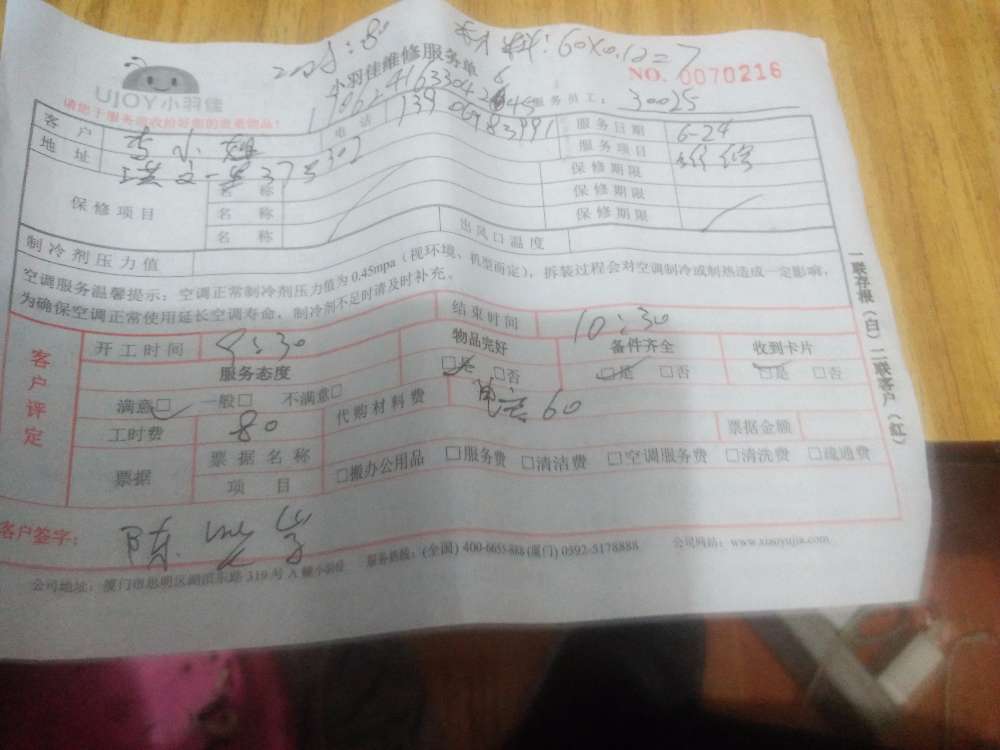 材料:60×0.12=7
小羽佳维修服务单
NO. 0070216
UJOY小羽佳
服务员工: 30025
客户 李小姐 电话 13906983991 服务日期 6-24
地址 服务项目 维修
保修项目 名称 保修期限
名称 保修期限
名称 保修期限
制冷剂压力值 出风口温度
空调服务温馨提示:空调正常制冷剂压力值为0.45mpa(视环境、机型而定),拆装过程会对空调制冷或制热造成一定影响,
为确保空调正常使用延长空调寿命,制冷剂不足时请及时补充。
客户评定
开工时间 9:30 结束时间 10:30
服务态度 物品完好 备件齐全 收到卡片
满意□ 一般□ 不满意□ □是 □否 □是 □否 □是 □否
工时费 80 代购材料费 60 票据金额
票据 票据名称 □搬办公用品 □服务费 □清洁费 □空调服务费 □清洗费 □疏通费
项目
客户签字: 陈
公司地址:厦门市思明区湖滨东路319号A幢 服务热线:(全国)400-6655-888(厦门)0592-5178888 公司网站:www.xiaoyujia.com
一联存根(白)二联客户(红)